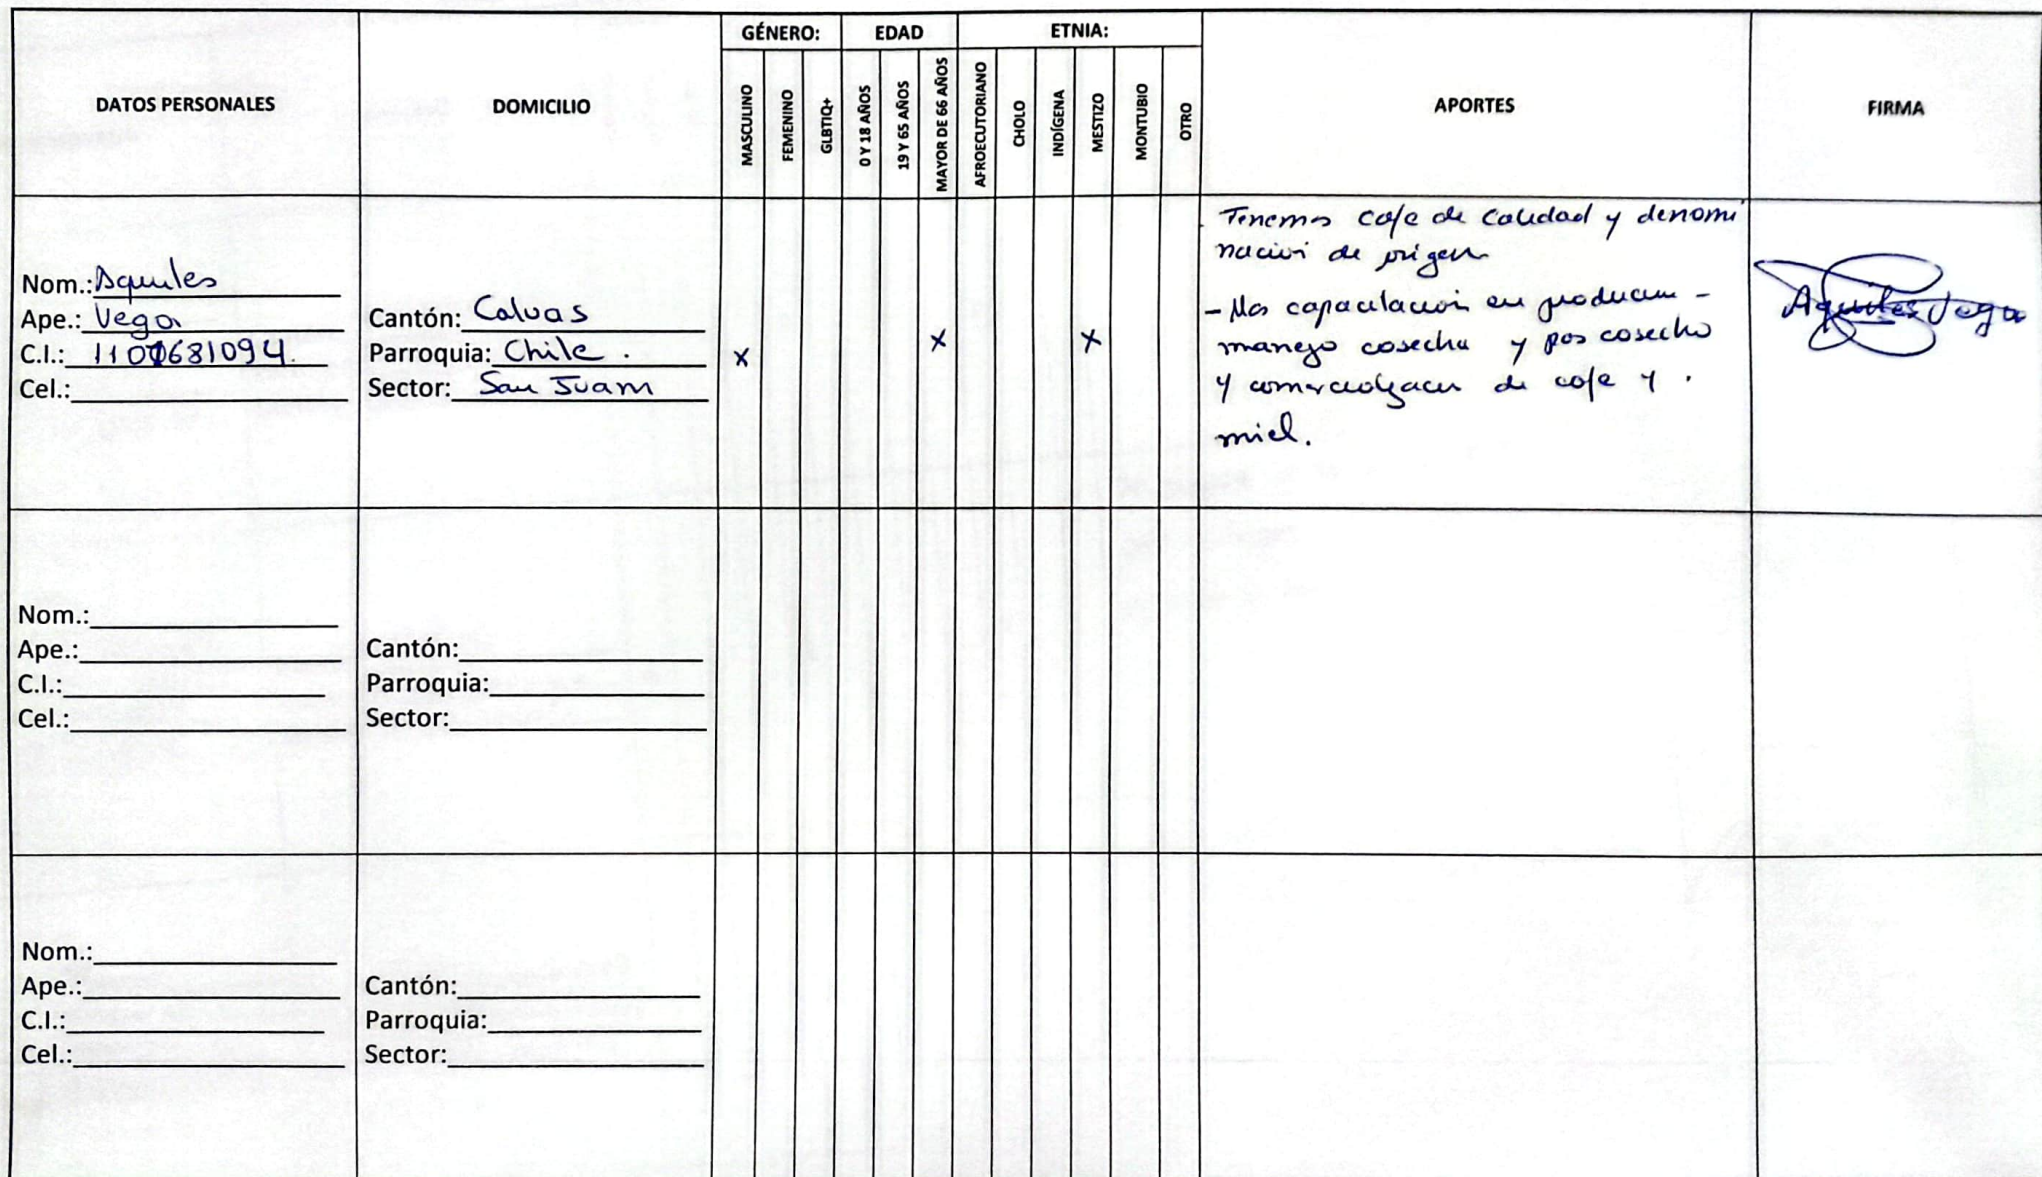 GÉNERO: EDAD ETNIA:
DATOS PERSONALES DOMICILIO MASCULINO FEMENINO GLBTIQ+ 0 Y 18 AÑOS 19 Y 65 AÑOS MAYOR DE 66 AÑOS AFROECUTORIANO CHOLO INDÍGENA MESTIZO MONTUBIO OTRO APORTES FIRMA
Nom.: Aquiles
Ape.: Vega
C.I.: 1101681094.
Cel.:
Cantón: Calvas
Parroquia: Chile.
Sector: San Juam
x x x
- Tenemos cafe de calidad y denomi
nación de origen
- Mas capacitacion en produccion -
manejo cosecha y pos cosecha
y comercializacion de cafe y.
miel.
Aquiles Vega
Nom.:
Ape.:
C.I.:
Cel.:
Cantón:
Parroquia:
Sector:
Nom.:
Ape.:
C.I.:
Cel.:
Cantón:
Parroquia:
Sector: